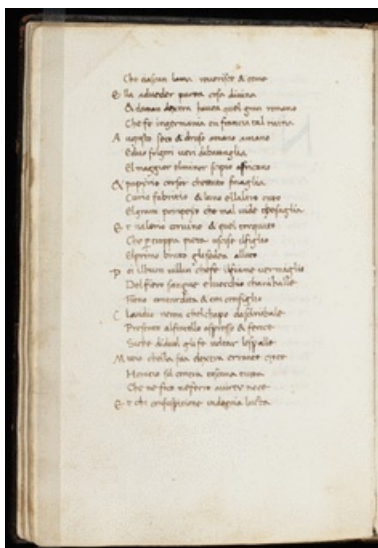 Che ciascun lauda reverisce & teme
E lla adveder purea cosa divina
Et daman dextra havea quel gran romano
Che fe ingermania en francia tal ruina
A ugusto seco & druso amano amano
Edue folgori veri dibattaglia
El maggior elminor scipio africano
Et papirio corser chettutto smaglia
Curio fabritio & luno ellaltro cato
El gran pompeyo che mal vide thesaglia
E t valerio corvino & quel torquato
Che per troppa pieta uccise ilfiglio
El primo bruto gli allato
P oi il buon villan chefe ilfiume vermiglio
Del fiero sangue el vecchio charaballe
Freno concordita & con consiglio
C laudio neron chel chapo dascirubale
Presento alfratello aspreso & feroce
Siche didual gli fe voltar lespalle
M utio chella sua dextra errante coce
Horatio sol contra toscana tutta
Che ne foco neferro avirtu nece
E t chi consuspitione indegnia lucta